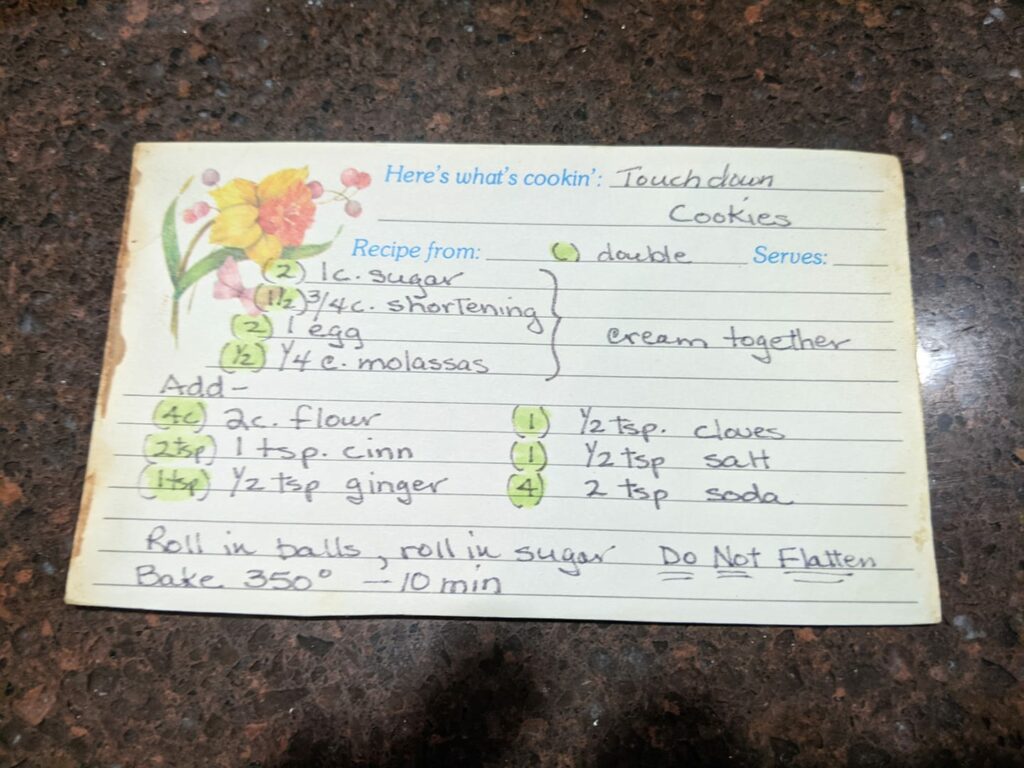 Here's what's cookin': Touchdown
Cookies
Recipe from: ( ) double Serves:
(2) 1 c. sugar
(1 1/2) 3/4 c. shortening
(2) 1 egg
(1/2) 1/4 c. molassas
} cream together
Add-
(4c) 2c. flour (1) 1/2 tsp. cloves
(2tsp) 1 tsp. cinn (1) 1/2 tsp salt
(1tsp) 1/2 tsp ginger (4) 2 tsp soda
Roll in balls, roll in sugar Do Not Flatten
Bake 350° - 10 min